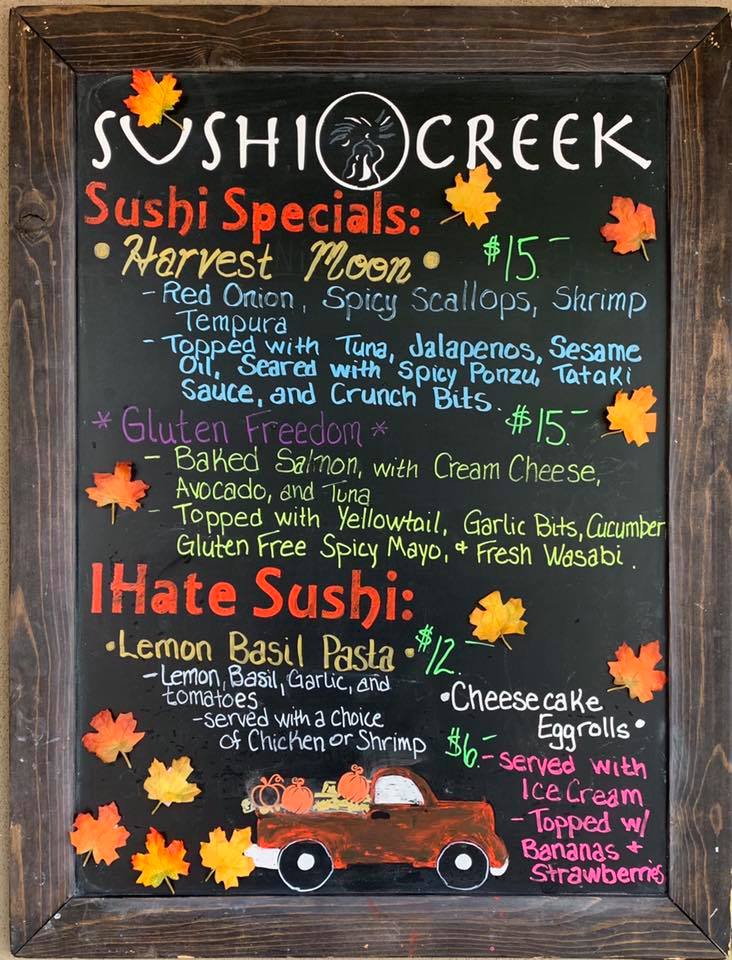 SUSHI CREEK
Sushi Specials:
• Harvest Moon • $15.-
- Red Onion, Spicy Scallops, Shrimp
Tempura
- Topped with Tuna, Jalapenos, Sesame
Oil, Seared with Spicy Ponzu, Tataki
Sauce, and Crunch Bits.
* Gluten Freedom * $15.-
- Baked Salmon, with Cream Cheese,
Avocado, and Tuna
- Topped with Yellowtail, Garlic Bits, Cucumber
Gluten Free Spicy Mayo, & Fresh Wasabi.
I Hate Sushi:
• Lemon Basil Pasta • $12.-
- Lemon, Basil, Garlic, and
tomatoes
- served with a choice
of Chicken or Shrimp
• Cheesecake
Eggrolls •
$6.- - served with
Ice Cream
- Topped w/
Bananas +
Strawberries